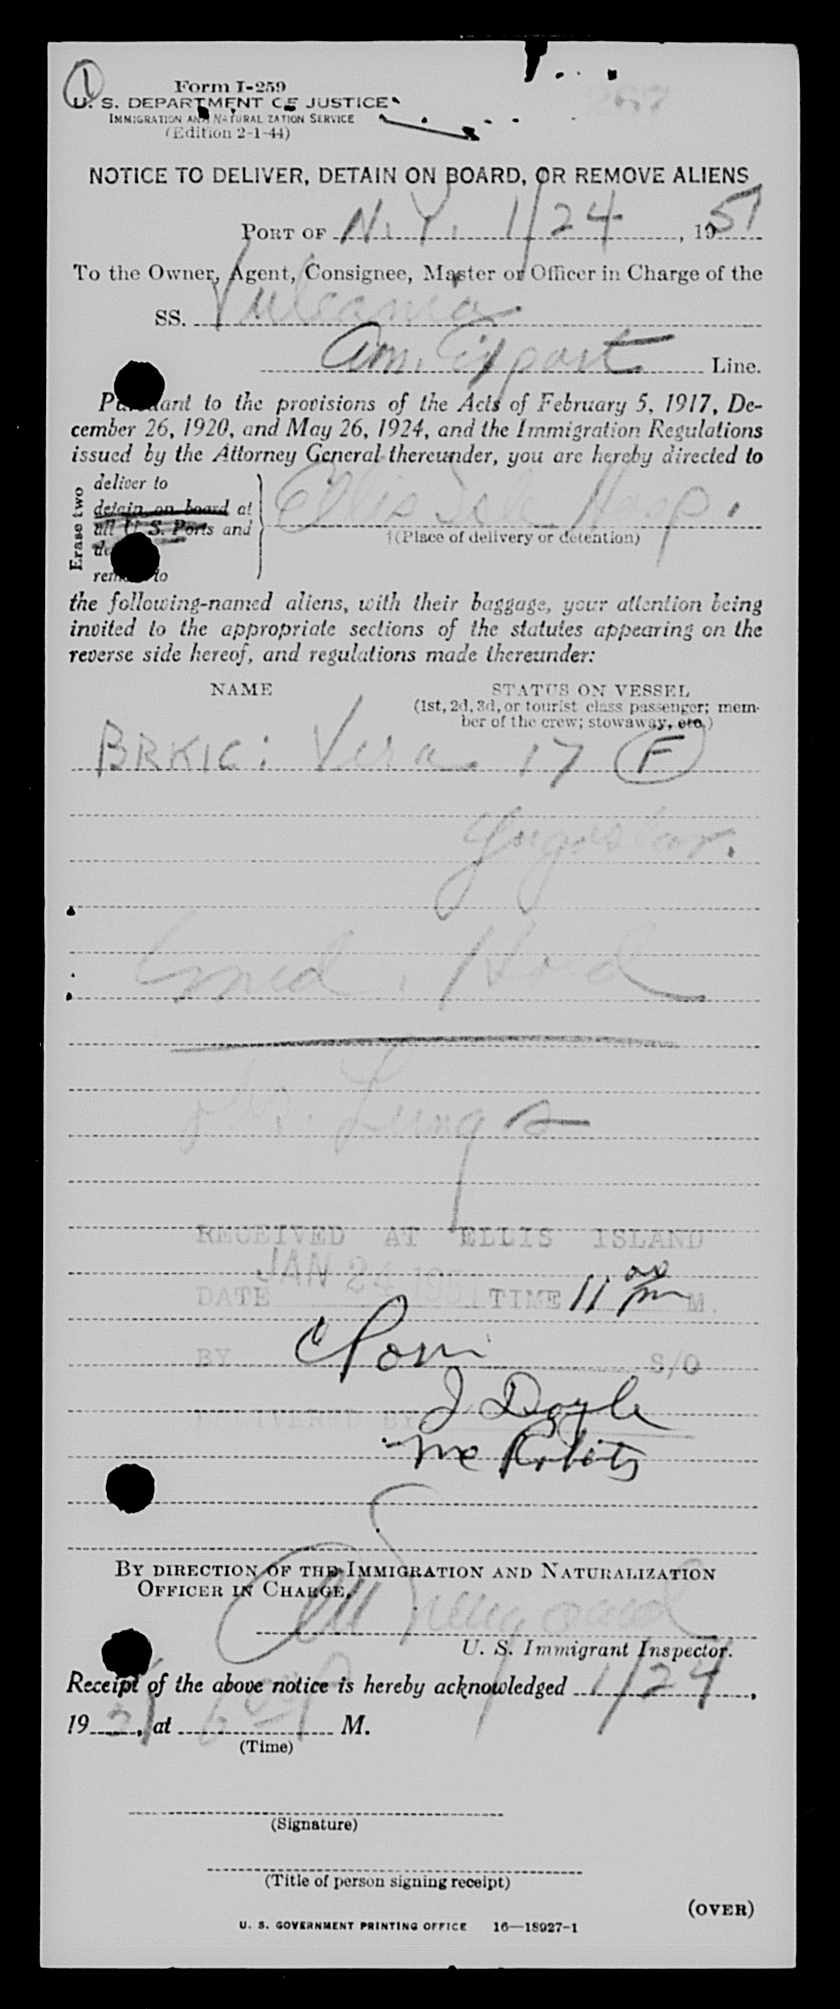 1
Form I-259
U. S. DEPARTMENT OF JUSTICE
IMMIGRATION AND NATURALIZATION SERVICE
(Edition 2-1-44)
NOTICE TO DELIVER, DETAIN ON BOARD, OR REMOVE ALIENS
PORT OF N.Y. 1/24, 1951
To the Owner, Agent, Consignee, Master or Officer in Charge of the
SS. Vulcania
Am. Export Line.
Pursuant to the provisions of the Acts of February 5, 1917, De-
cember 26, 1920, and May 26, 1924, and the Immigration Regulations
issued by the Attorney General thereunder, you are hereby directed to
Erase two
deliver to
detain on board at
all U. S. Ports and
remove to
Ellis Isle Hosp.
†(Place of delivery or detention)
the following-named aliens, with their baggage, your attention being
invited to the appropriate sections of the statutes appearing on the
reverse side hereof, and regulations made thereunder:
NAME STATUS ON VESSEL
(1st, 2d, 3d, or tourist class passenger; mem-
ber of the crew; stowaway, etc.)
BRKIC: Vera 17 F
Yugoslav.
med. Hold
Lungs
RECEIVED AT ELLIS ISLAND
DATE JAN 24 1951 TIME 11 00 pm M.
BY S/O
DELIVERED BY J Doyle
BY DIRECTION OF THE IMMIGRATION AND NATURALIZATION
OFFICER IN CHARGE,
U. S. Immigrant Inspector.
Receipt of the above notice is hereby acknowledged 1/24,
1951, at M.
(Time)
(Signature)
(Title of person signing receipt)
(OVER)
U. S. GOVERNMENT PRINTING OFFICE 16—18927-1